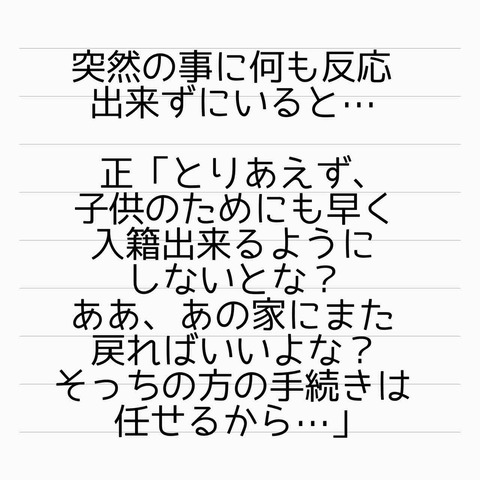 突然の事に何も反応
出来ずにいると…
正「とりあえず、
子供のためにも早く
入籍出来るように
しないとな？
ああ、あの家にまた
戻ればいいよな？
そっちの方の手続きは
任せるから…」